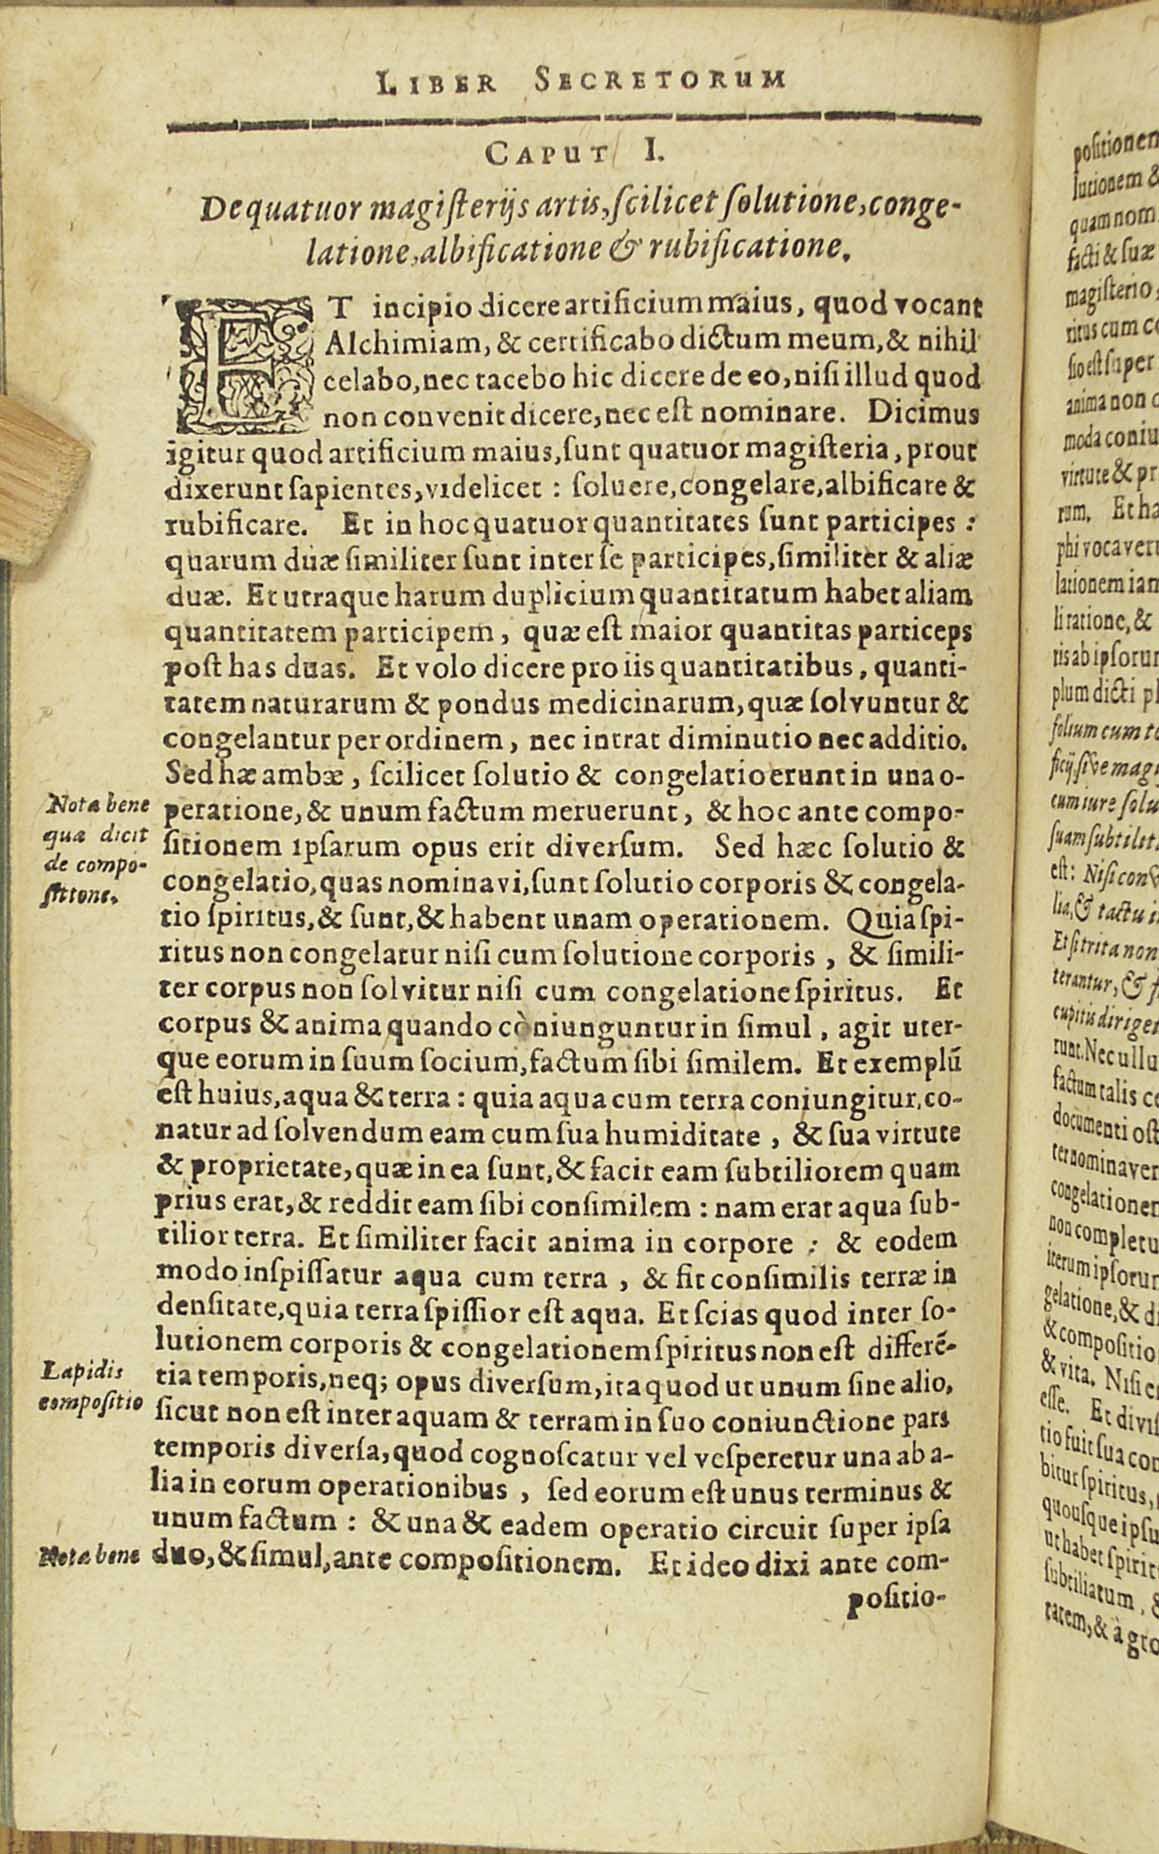 LIBER SECRETORUM
CAPUT I.
De quatuor magisterijs artis, scilicet solutione, conge-
latione, albificatione & rubificatione.
ET incipio dicere artificium maius, quod vocant
Alchimiam, & certificabo dictum meum, & nihil
celabo, nec tacebo hic dicere de eo, nisi illud quod
non convenit dicere, nec est nominare. Dicimus
igitur quod artificium maius, sunt quatuor magisteria, prout
dixerunt sapientes, videlicet: soluere, congelare, albificare &
rubificare. Et in hoc quatuor quantitates sunt participes:
quarum duæ similiter sunt inter se participes, similiter & aliæ
duæ. Et utraque harum duplicium quantitatum habet aliam
quantitatem participem, quæ est maior quantitas particeps
post has duas. Et volo dicere pro iis quantitatibus, quanti-
tatem naturarum & pondus medicinarum, quæ solvuntur &
congelantur per ordinem, nec intrat diminutio nec additio.
Sed hæ ambæ, scilicet solutio & congelatio erunt in una o-
Nota bene
peratione, & unum factum meruerunt, & hoc ante compo-
quæ dicit
sitionem ipsarum opus erit diversum. Sed hæc solutio &
de compo-
congelatio, quas nominavi, sunt solutio corporis & congela-
sitione.
tio spiritus, & sunt, & habent unam operationem. Quia spi-
ritus non congelatur nisi cum solutione corporis, & simili-
ter corpus non solvitur nisi cum congelatione spiritus. Et
corpus & anima quando coniunguntur in simul, agit uter-
que eorum in suum socium, factum sibi similem. Et exemplũ
est huius, aqua & terra: quia aqua cum terra coniungitur, co-
natur ad solvendum eam cum sua humiditate, & sua virtute
& proprietate, quæ in ea sunt, & facit eam subtiliorem quam
prius erat, & reddit eam sibi consimilem: nam erat aqua sub-
tilior terra. Et similiter facit anima in corpore: & eodem
modo inspissatur aqua cum terra, & fit consimilis terræ in
densitate, quia terra spissior est aqua. Et scias quod inter so-
lutionem corporis & congelationem spiritus non est differẽ-
Lapidis
tia temporis, neq; opus diversum, ita quod ut unum sine alio,
compositio
sicut non est inter aquam & terram in suo coniunctione pars
temporis diversa, quod cognoscatur vel vesperetur una ab a-
lia in eorum operationibus, sed eorum est unus terminus &
unum factum: & una & eadem operatio circuit super ipsa
Nota bene
duo, & simul, ante compositionem. Et ideo dixi ante com-
positio-
lutionem &
quam nom
facti & suæ
magisterio,
ritus cum co
sio est super
anima non
moda coniu
virtute & pr
rum. Et ha
lationem iam
li ratione, &
plum dicti
folium cum
suam subtilit
est: Nisi conv
lia, & tactu
Et si trita non
terantur, &
runt. Nec ullu
factum talis
congelationem
non completu
iterum ipsorum
gelatione, &
& compositio
& vita. Nisi
esse. Et divis
tio fuit sua
bitur spiritus,
quousque ipsu
subtiliatum,
tatem, & à gro